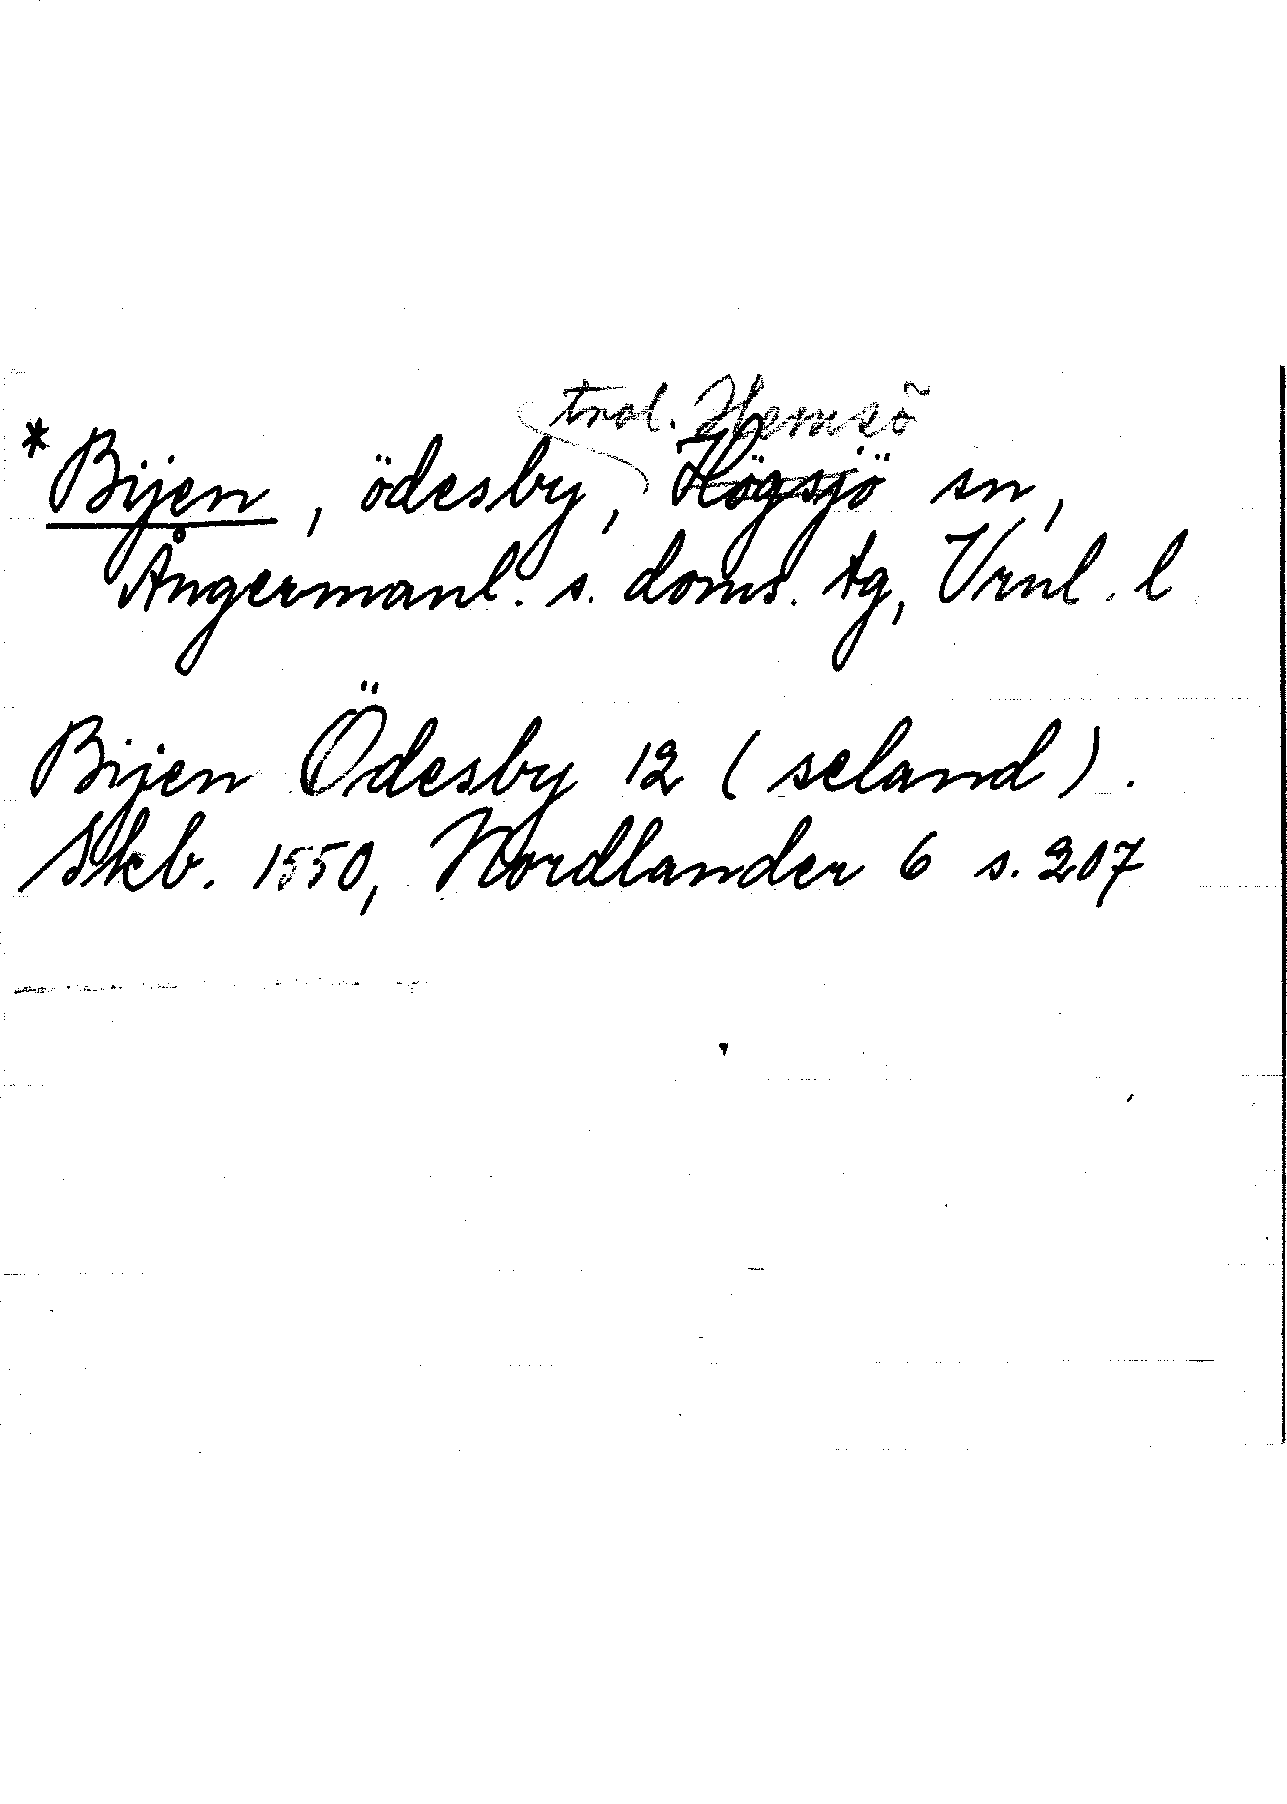 trol. Hemsö
* Bijen, ödesby, Högsjö sn,
Ångermanl. s. doms. tg, Vrnl. l
Bijen Ödesby 12 (seland).
Skb. 1550, Nordlander 6 s. 207